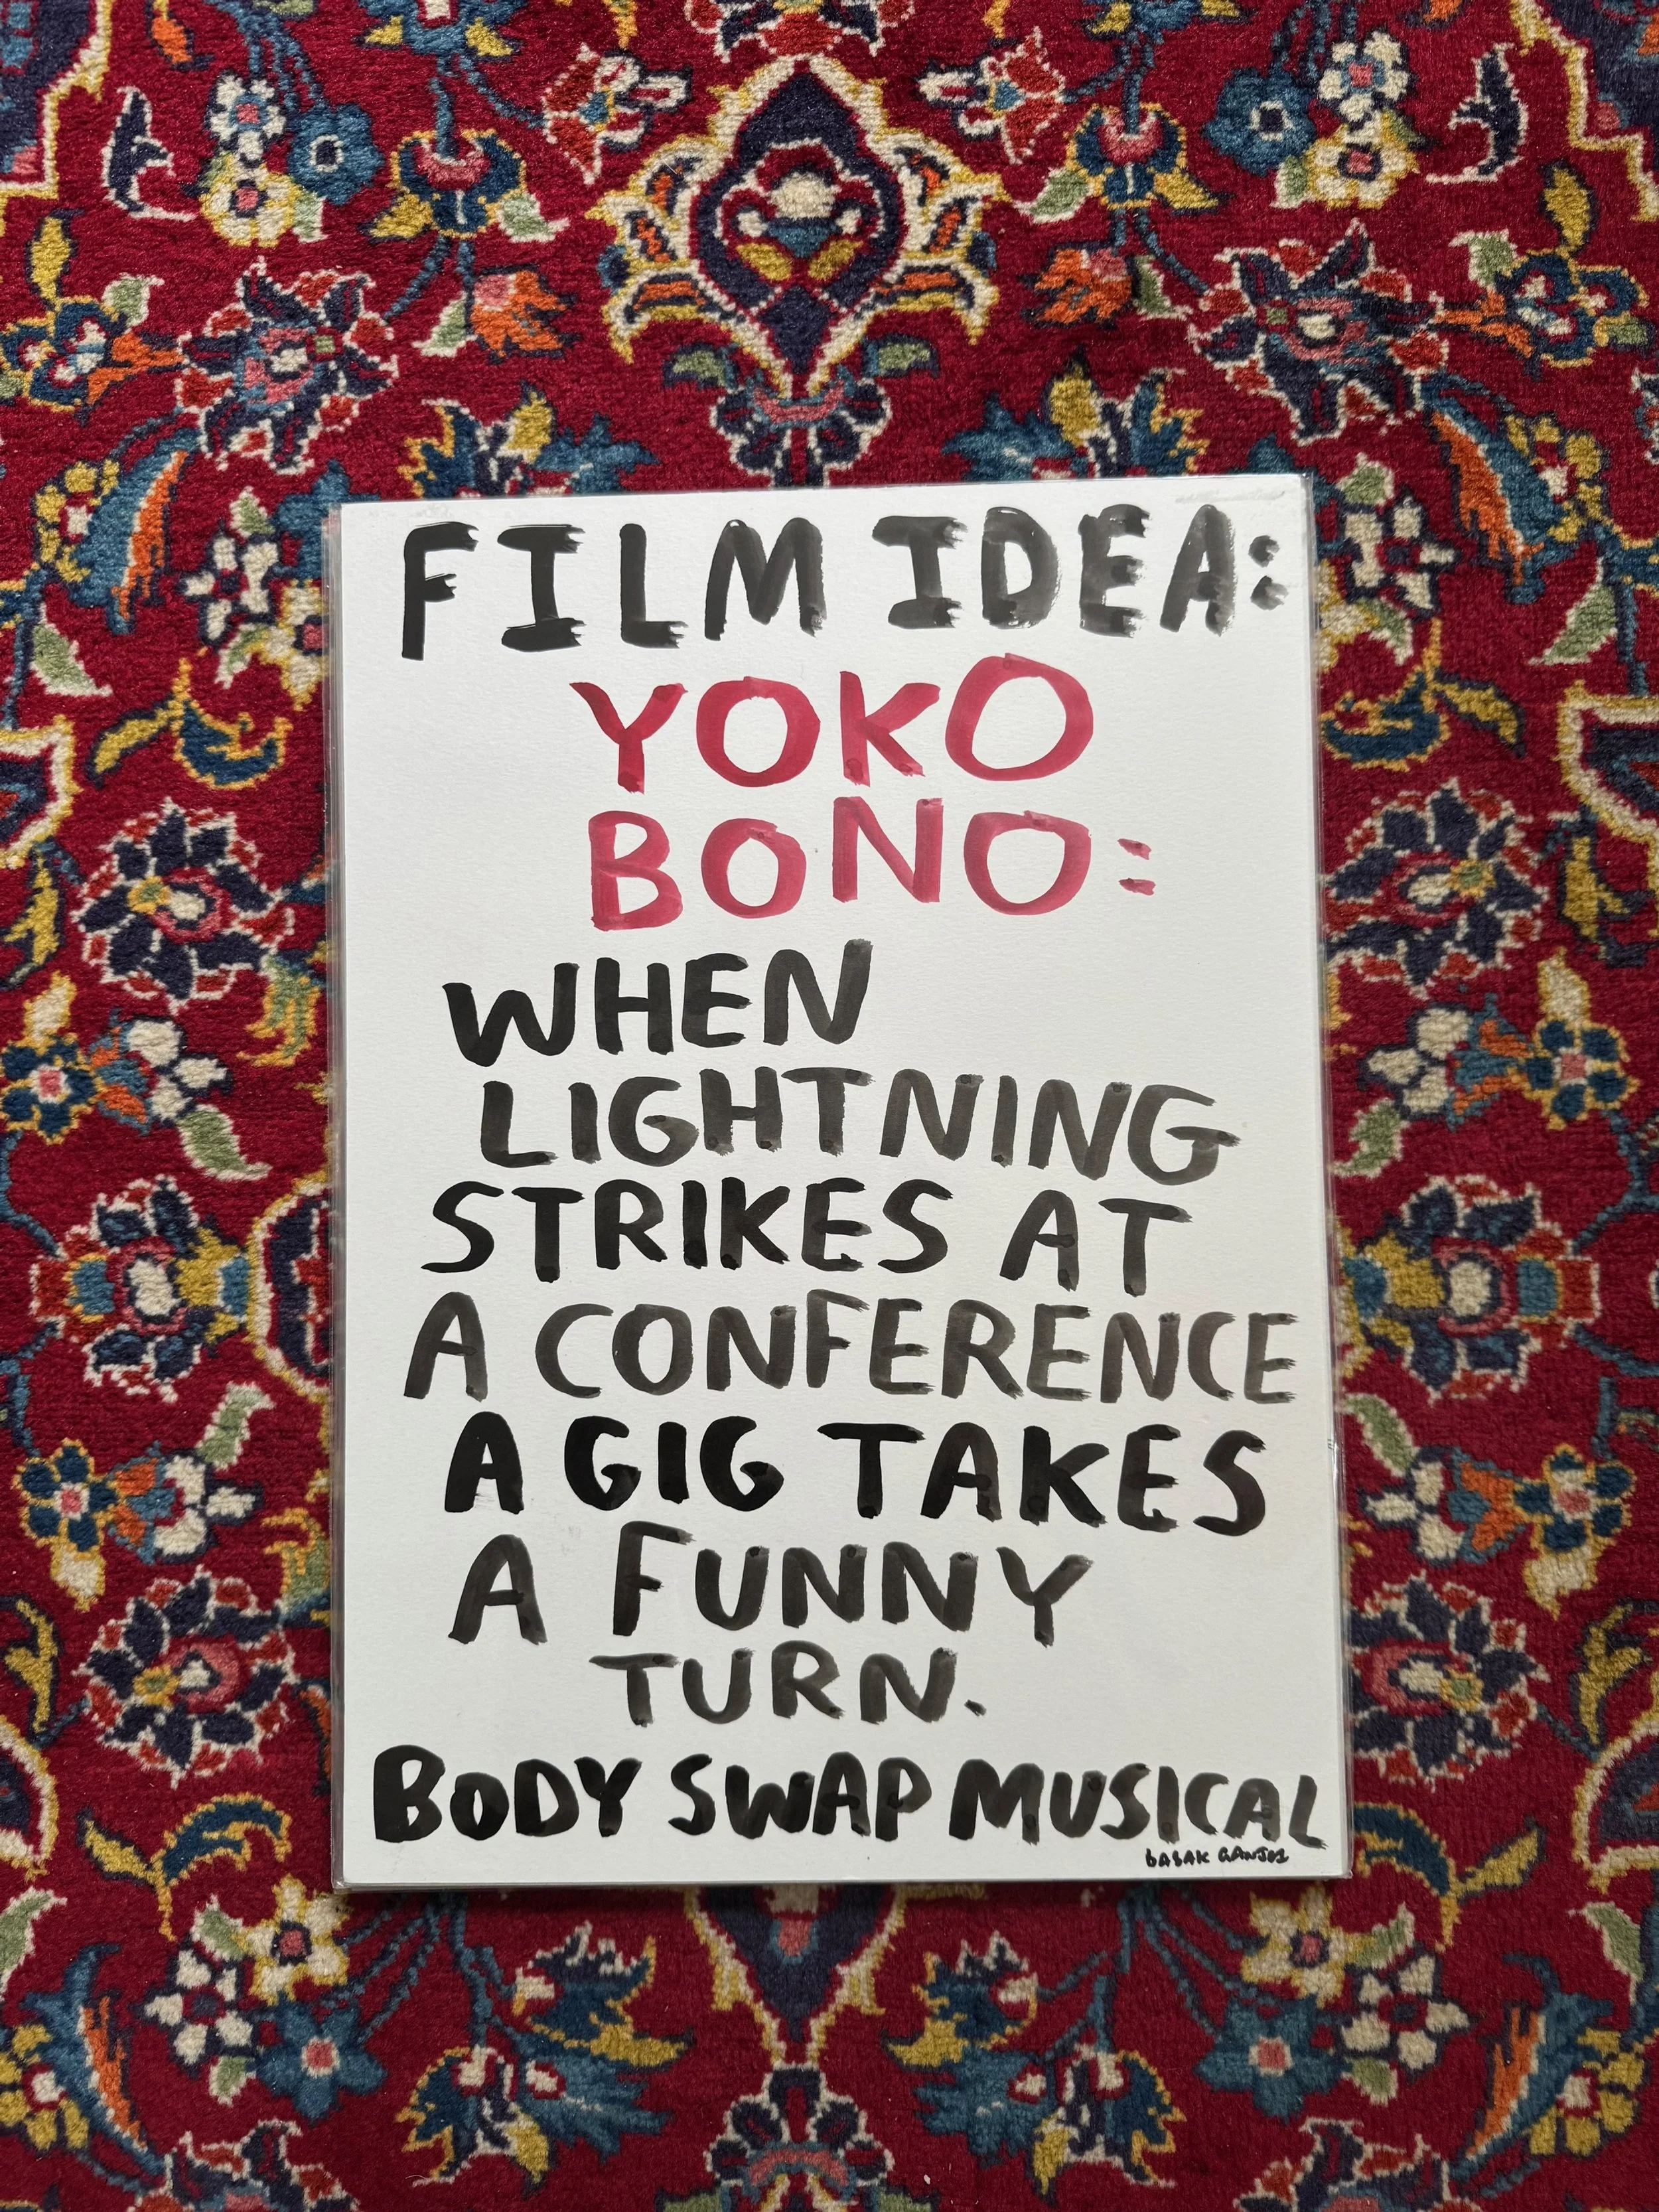 FILM IDEA:
YOKO
BONO:
WHEN
LIGHTNING
STRIKES AT
A CONFERENCE
A GIG TAKES
A FUNNY
TURN.
BODY SWAP MUSICAL
BABAK GANJEI